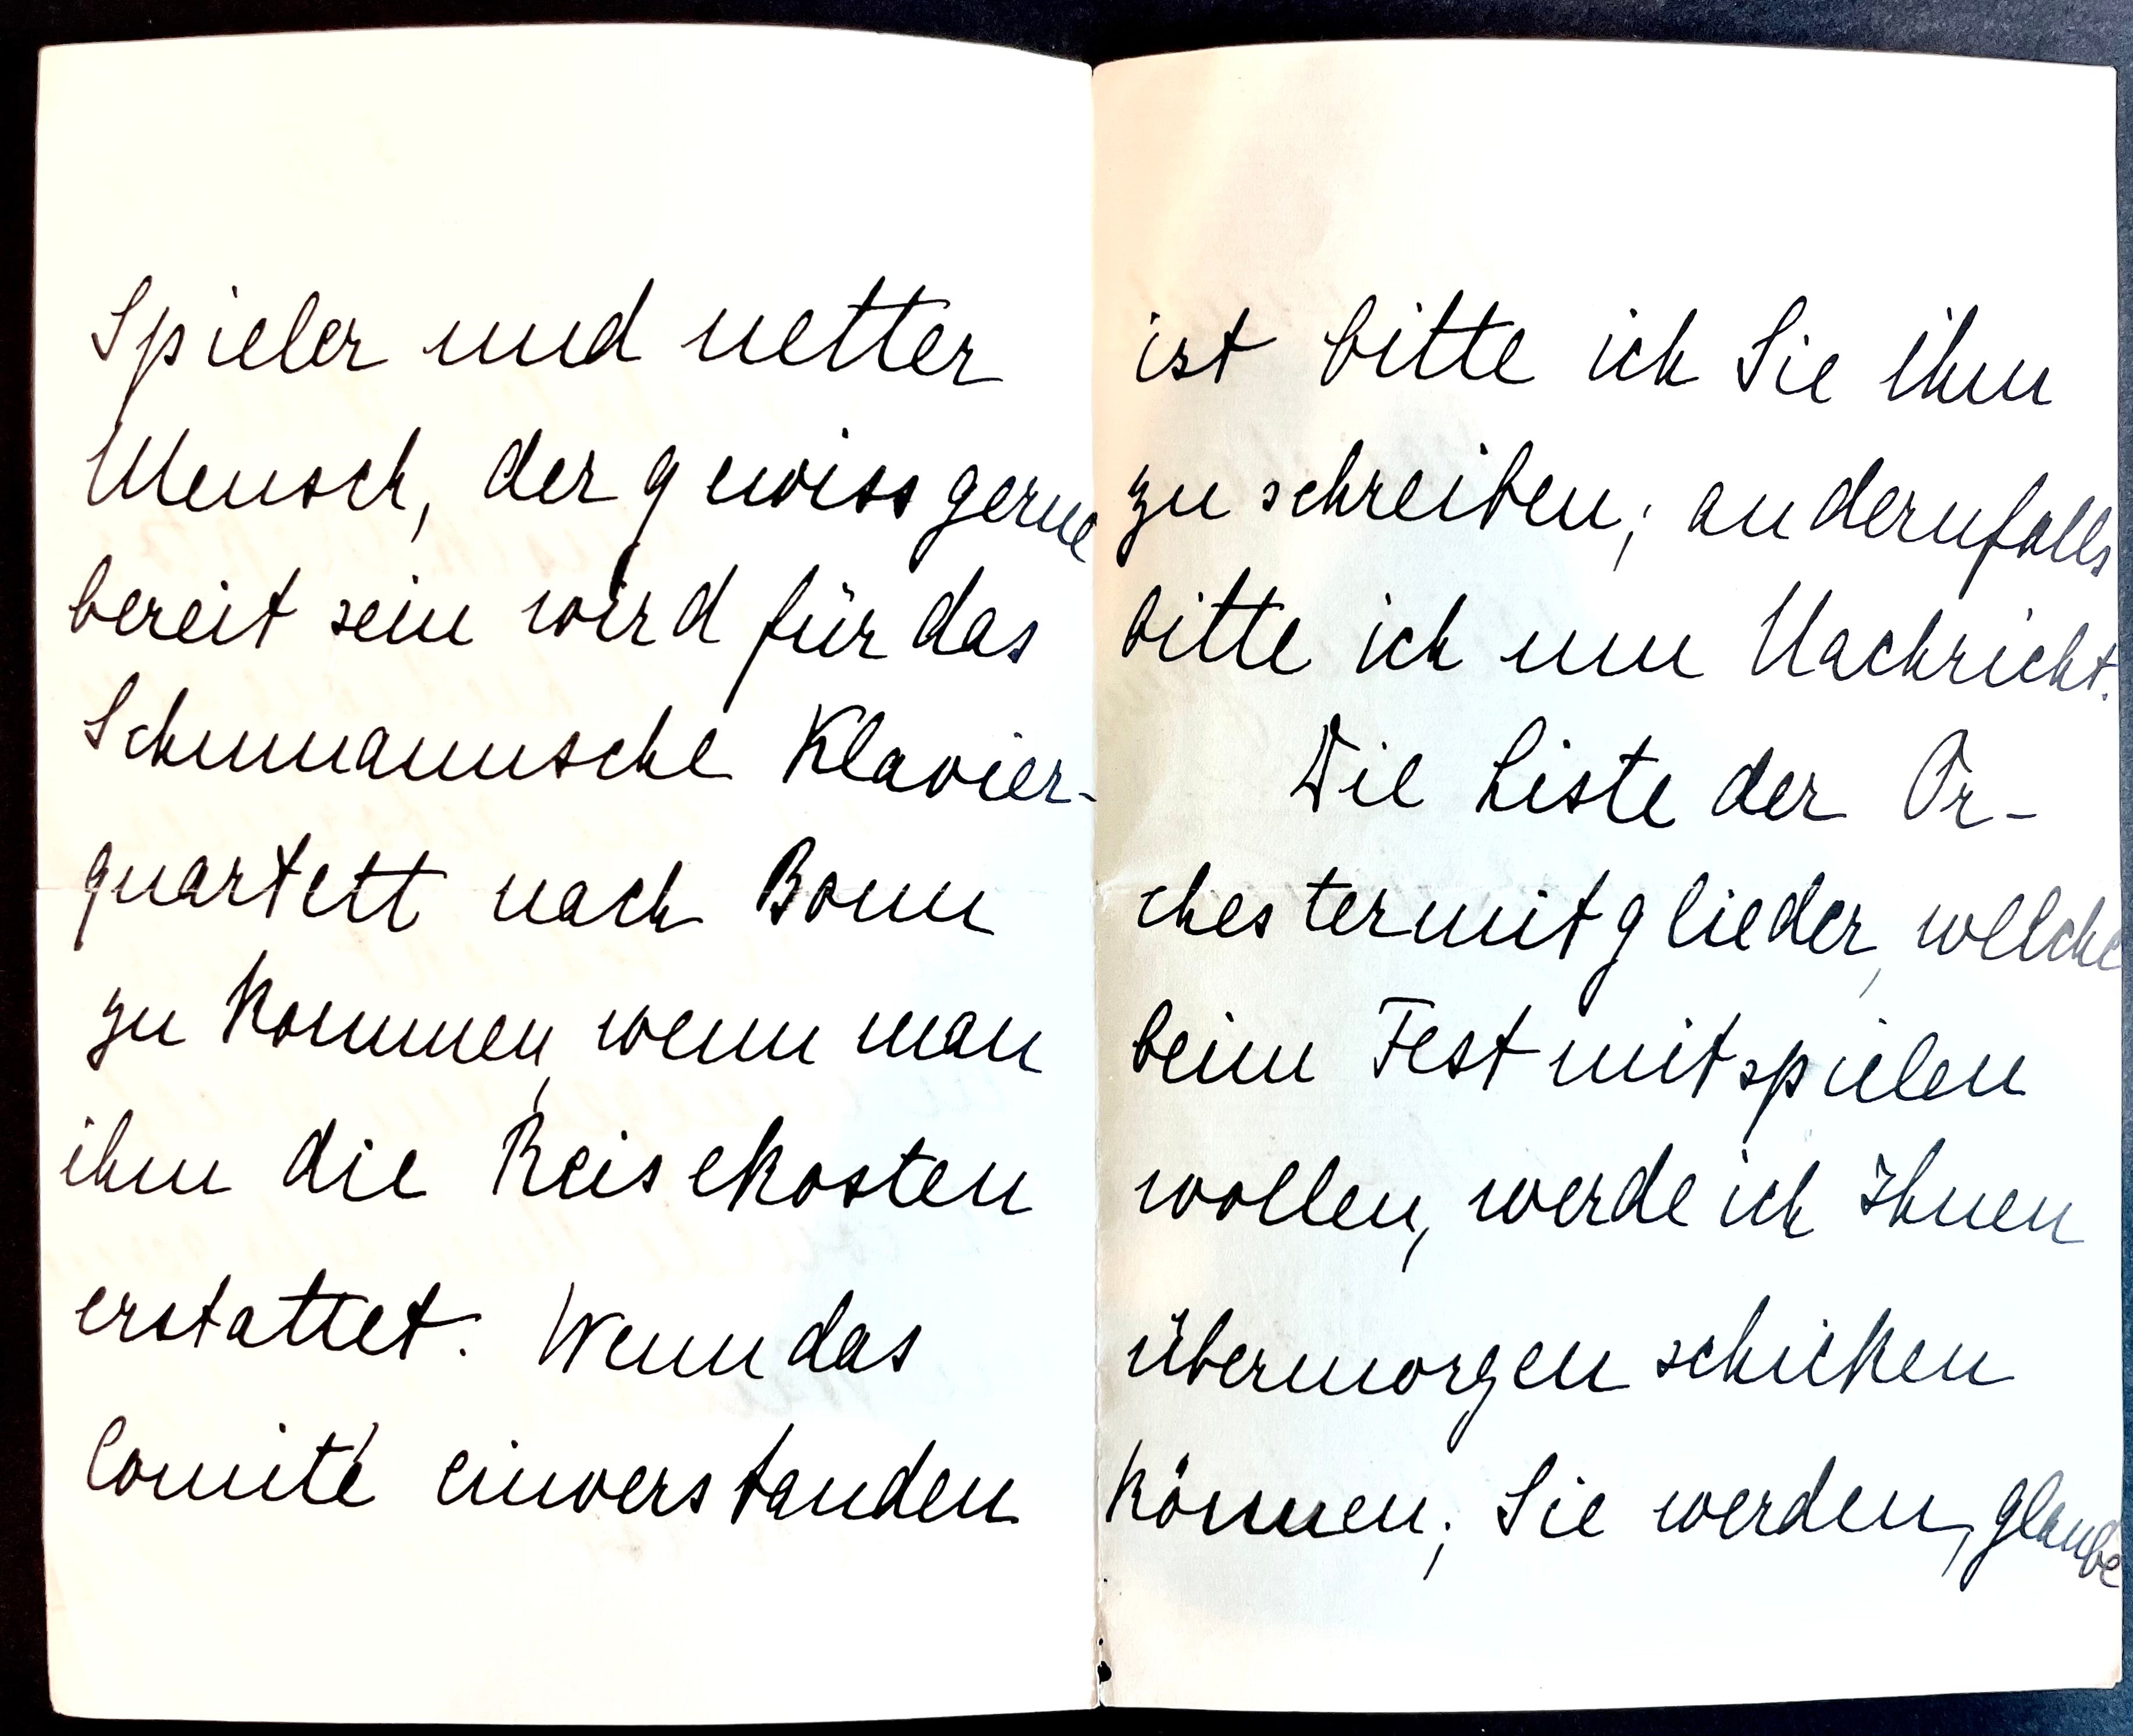 Spieler und netter
Mensch, der gewiss gerne
bereit sein wird für das
Schumannsche Klavier-
quartett nach Bonn
zu kommen, wenn man
ihm die Reisekosten
erstattet. Wenn das
Comité einverstanden
ist bitte ich Sie ihm
zu schreiben; andernfalls
bitte ich um Nachricht.
Die Liste der Or-
chestermitglieder, welche
beim Fest mitspielen
wollen, werde ich Ihnen
übermorgen schicken
können; Sie werden, glaube